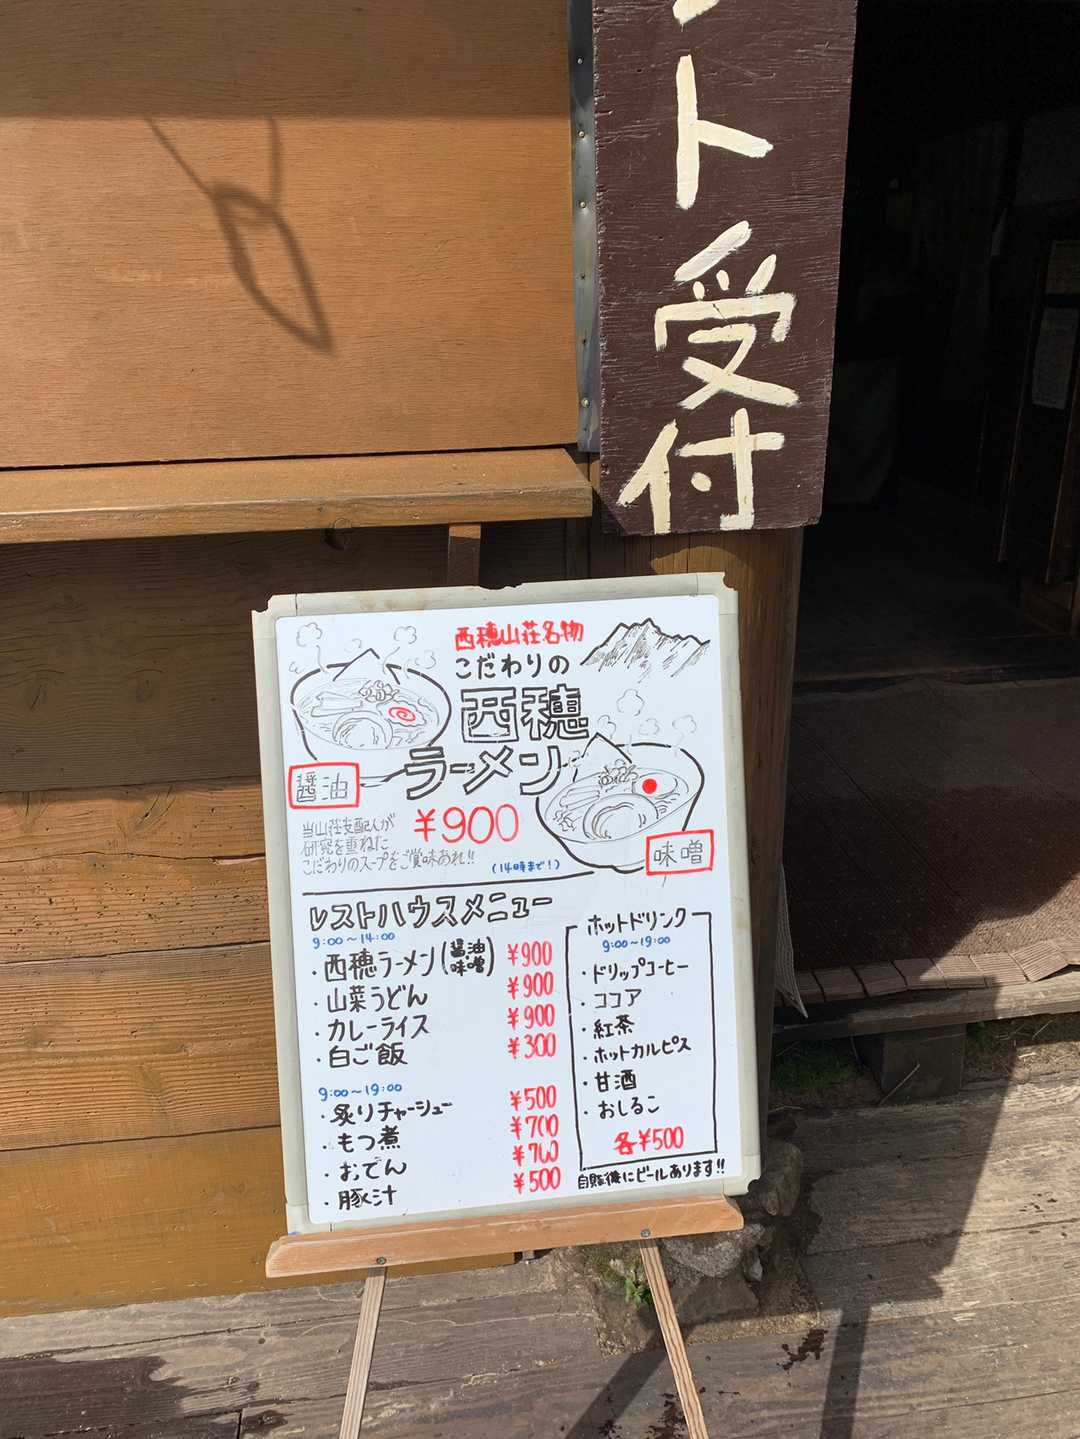 ト受付
西穂山荘名物
こだわりの
西穂
ラーメン
醤油
¥900
当山荘支配人が
研究を重ねた
こだわりのスープをご賞味あれ!!
(14時まで!)
味噌
レストハウスメニュー
9:00〜14:00
・西穂ラーメン(醤油 味噌) ¥900
・山菜うどん ¥900
・カレーライス ¥900
・白ご飯 ¥300
9:00〜19:00
・炙りチャーシュー ¥500
・もつ煮 ¥700
・おでん ¥700
・豚汁 ¥500
ホットドリンク
9:00〜19:00
・ドリップコーヒー
・ココア
・紅茶
・ホットカルピス
・甘酒
・おしるこ
各¥500
自販機にビールあります!!